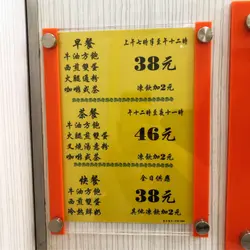 早餐 上午七時半至午十二時
牛油方飽
西煎雙蛋 38元
火腿通粉
咖啡或茶 凍飲加2元
茶餐 午十二時至夜十一時
牛油方飽
西煎雙蛋 46元
叉燒湯意粉
咖啡或茶 凍飲加2元
快餐 全日供應
牛油方飽 38元
西煎雙蛋
冷熱鮮奶 其他凍飲加2元